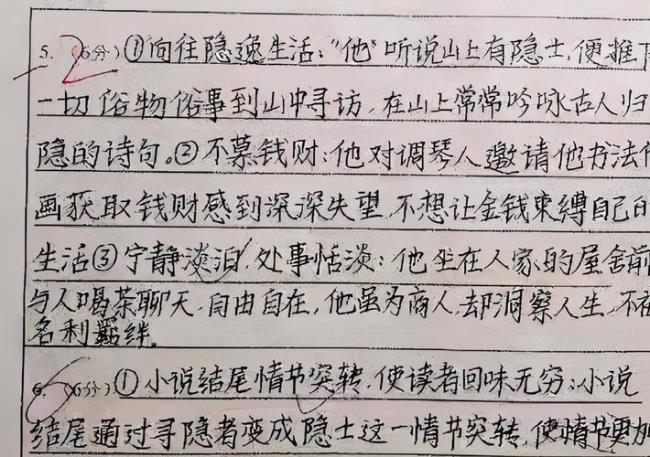 5. 2 (6分) ①向往隐逸生活："他"听说山上有隐士,便推
一切俗物俗事到山中寻访,在山上常常吟咏古人归
隐的诗句。②不慕钱财:他对调琴人邀请他书法
画获取钱财感到深深失望,不想让金钱束缚自己的
生活③宁静淡泊,处事恬淡:他坐在人家的屋舍前
与人喝茶聊天,自由自在,他虽为商人,却洞察人生,不
名利羁绊。
6. (6分) ①小说结尾情节突转,使读者回味无穷:小说
结尾通过寻隐者变成隐士这一情节突转,使情节更加